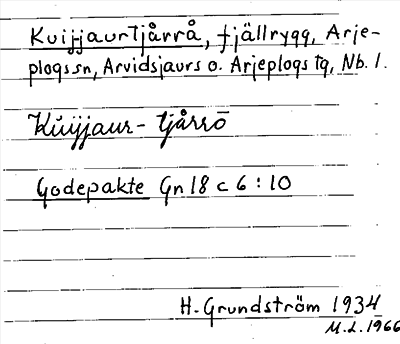 Kuijjaurtjårrå, fjällrygg, Arje-
plogssn, Arvidsjaurs o. Arjeplogs tg, Nb. l.
Kŭijjaur-tjårrō
Godepakte Gn 18 c 6 : 10
H. Grundström 1934
M.L. 1966